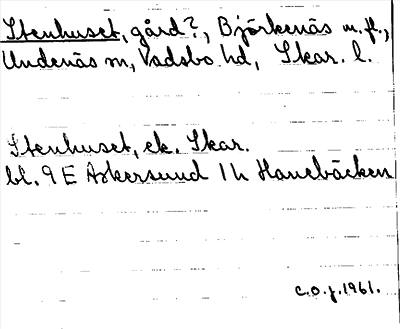 Stenhuset, gård?, Björkenäs m.fl.,
Undenäs sn, Vadsbo hd, Skar. l.
Stenhuset, ek. Skar.
bl. 9 E Askersund 1 h Hanebäcken
c.o.j. 1961.